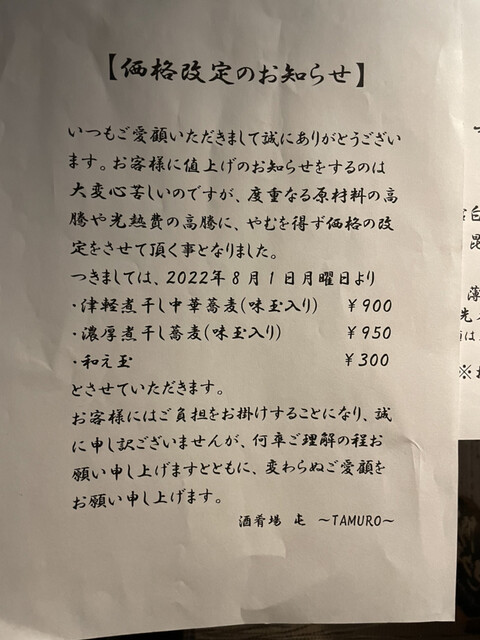 【価格改定のお知らせ】
いつもご愛顧いただきまして誠にありがとうござい
ます。お客様に値上げのお知らせをするのは
大変心苦しいのですが、度重なる原材料の高
騰や光熱費の高騰に、やむを得ず価格の改
定をさせて頂く事となりました。
つきましては、2022年8月1日月曜日より
・津軽煮干し中華蕎麦(味玉入り) ￥900
・濃厚煮干し蕎麦(味玉入り) ￥950
・和え玉 ￥300
とさせていただきます。
お客様にはご負担をお掛けすることになり、誠
に申し訳ございませんが、何卒ご理解の程お
願い申し上げますとともに、変わらぬご愛顧を
お願い申し上げます。
酒肴場 屯 ～TAMURO～